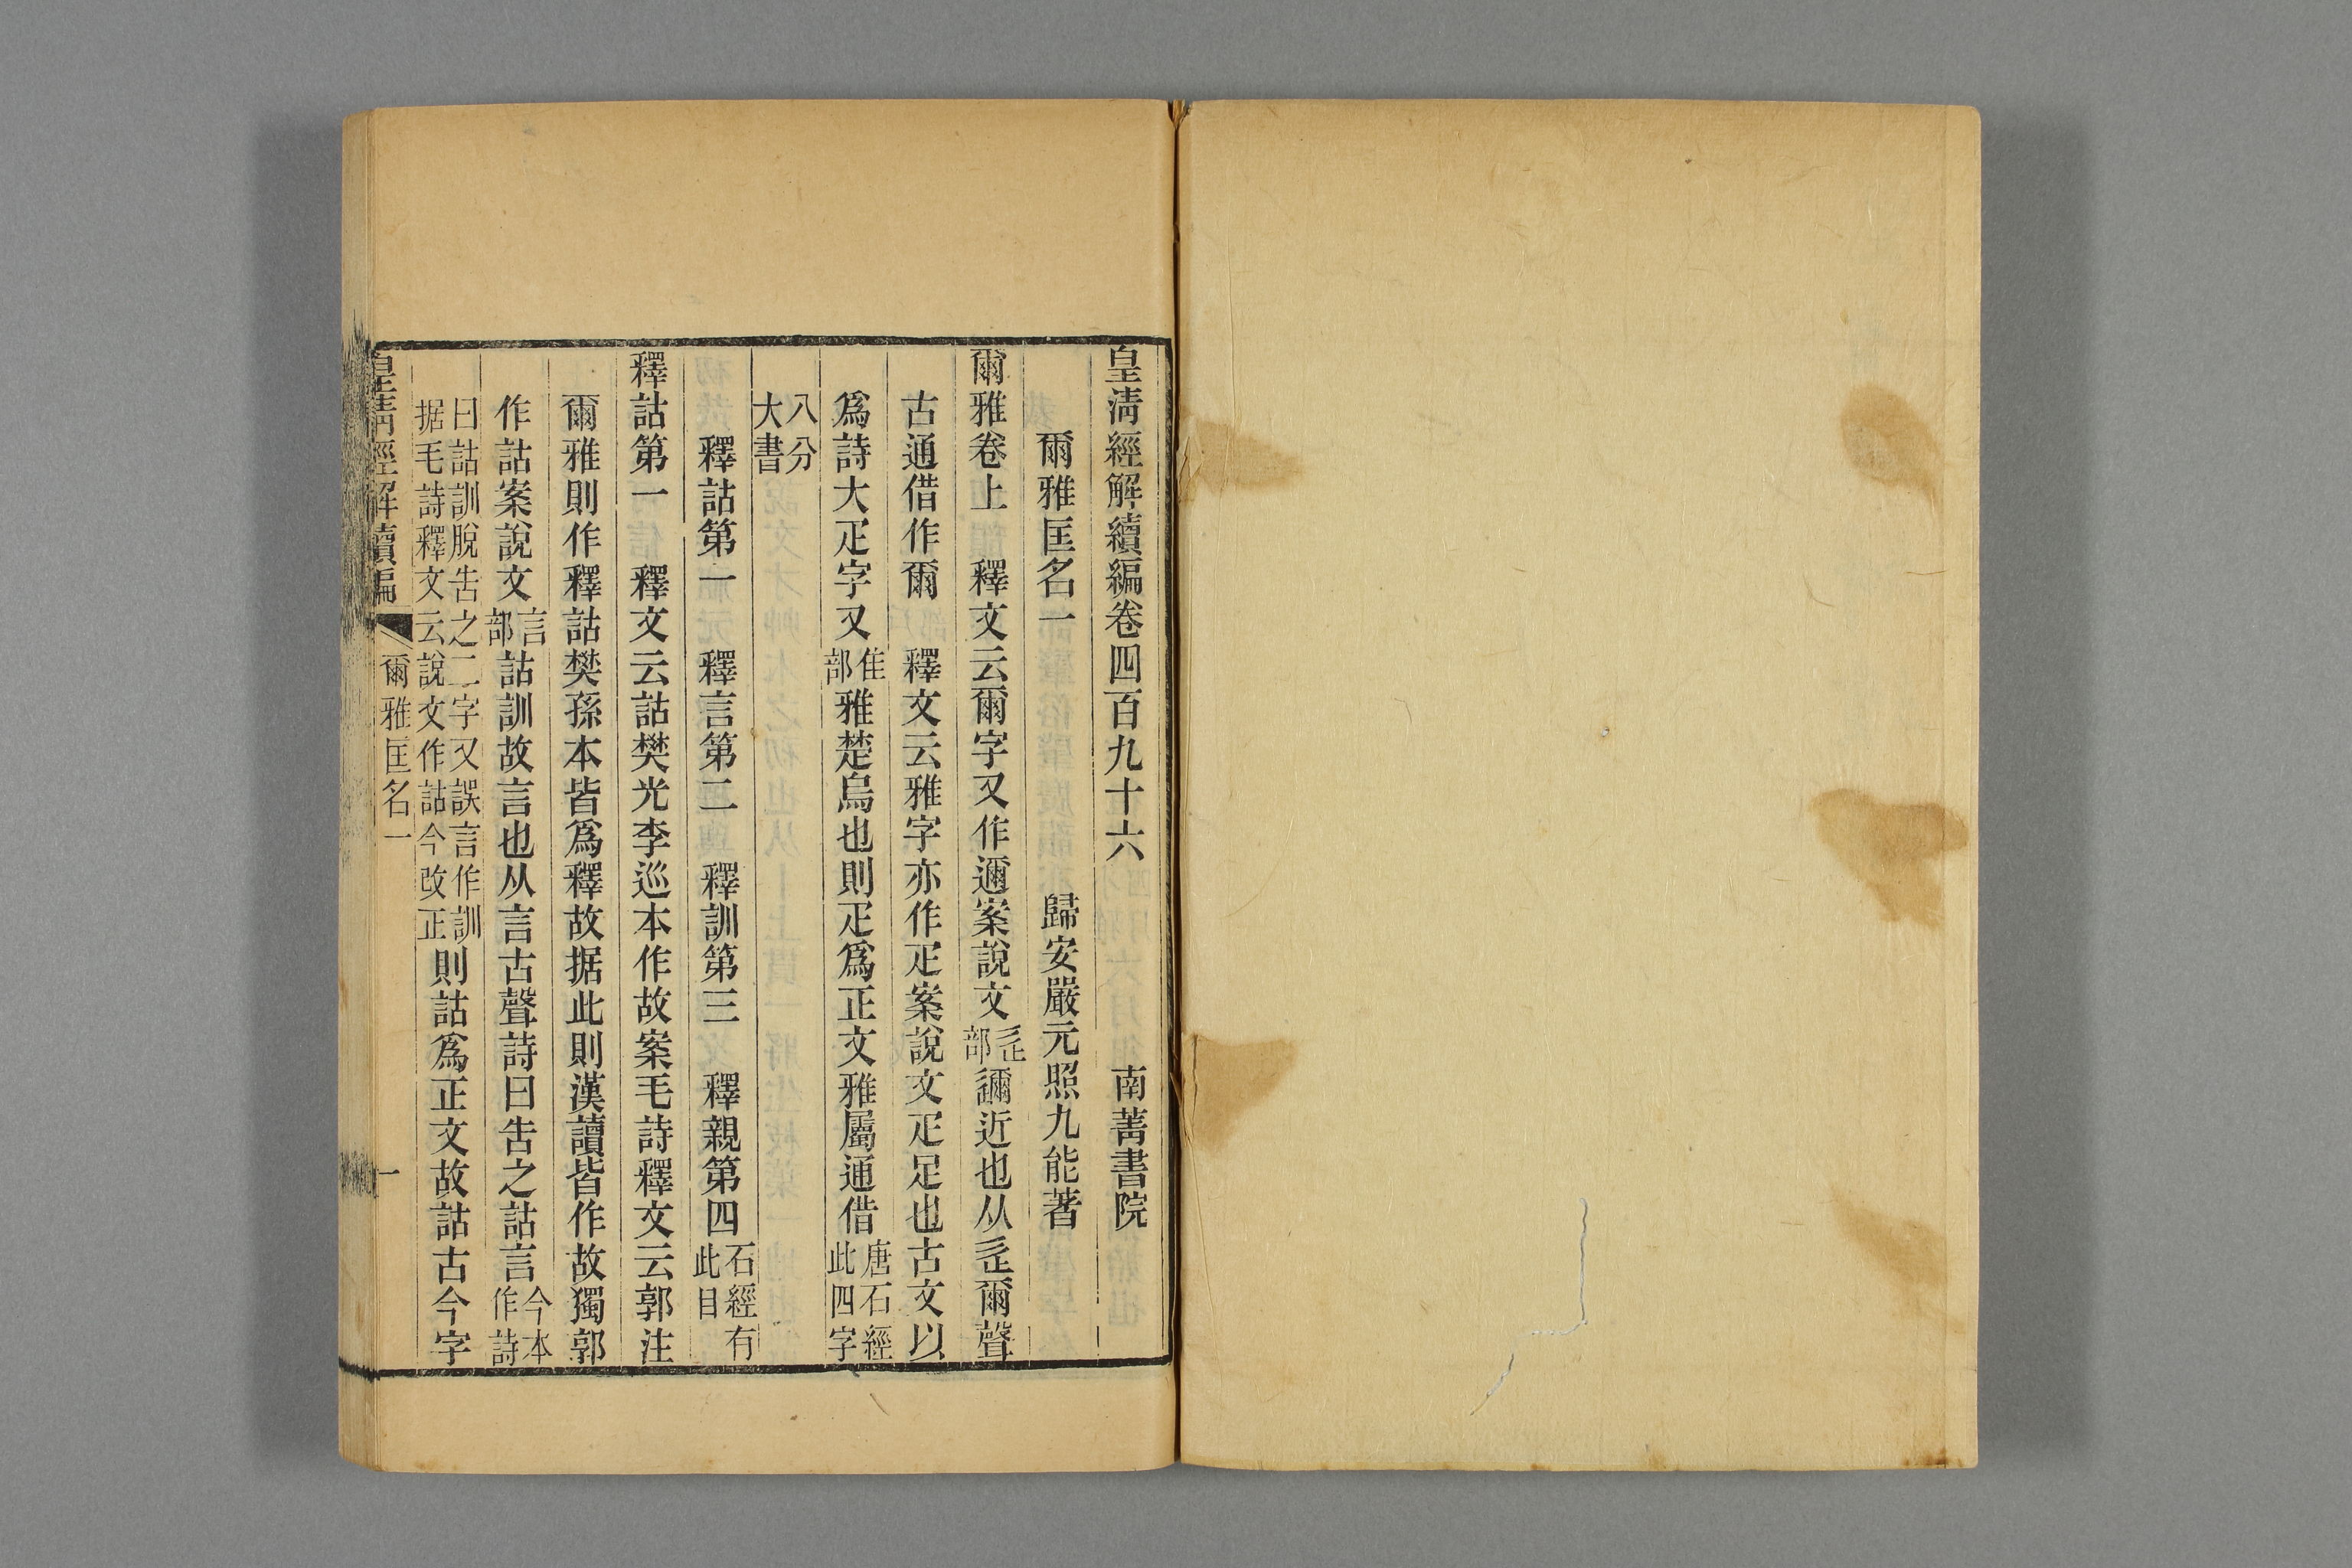 皇清經解續編卷四百九十六　南菁書院
爾雅匡名一　歸安嚴元照九能著
爾雅卷上　釋文云爾字又作邇案說文辵部邇近也从辵爾聲
古通借作爾　釋文云雅字亦作疋案說文疋足也古文以
爲詩大疋字又隹部雅楚烏也則疋爲正文雅屬通借唐石經此四字
八分大書
釋詁第一　釋言第二　釋訓第三　釋親第四石經有此目
釋詁第一　釋文云詁樊光李巡本作故案毛詩釋文云郭注
爾雅則作釋詁樊孫本皆爲釋故据此則漢讀皆作故獨郭
作詁案說文言部詁訓故言也从言古聲詩曰告之詁言今本作詩
曰詁訓脫告之二字又誤言作訓据毛詩釋文云說文作詁今改正則詁爲正文故詁古今字
皇清經解續編　爾雅匡名一　一